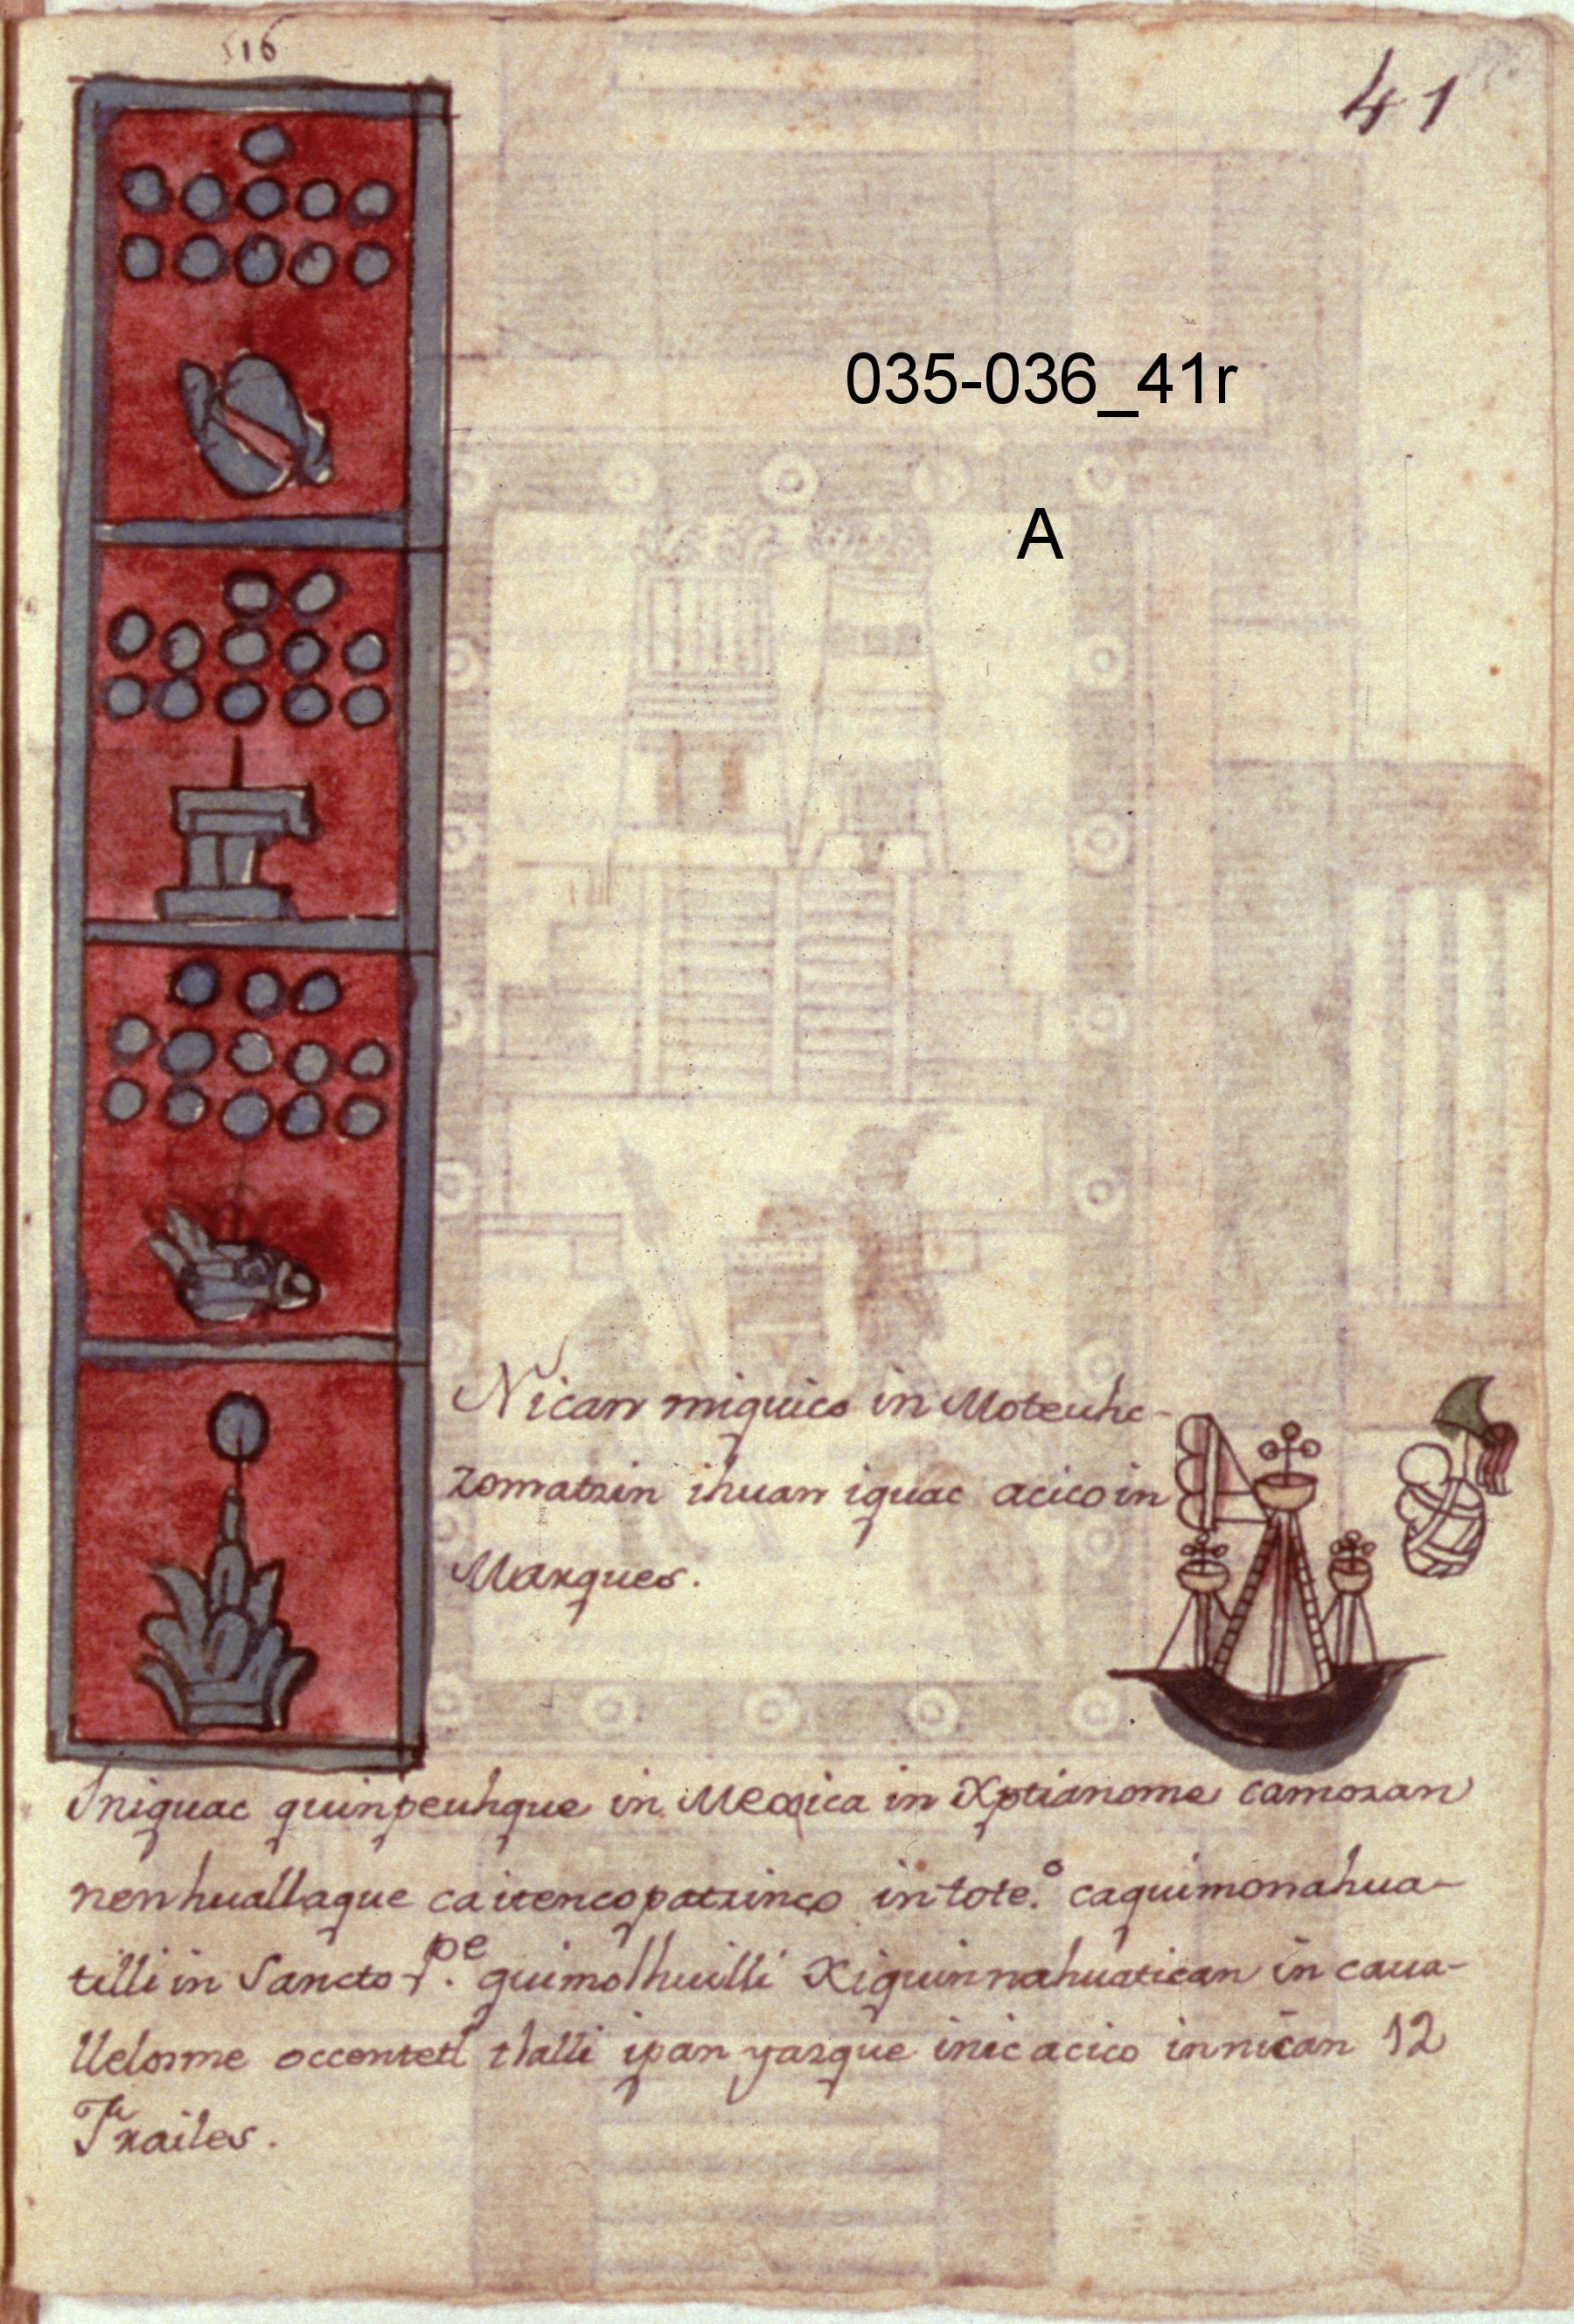 516
41
035-036_41r
A
Nican miquico in Moteuhc-
zomatzin ihuan iquac acico in
Marques.
Iniquac quinpeuhque in Mexica in Xptianome camozan
nenhuallaque ca itencopatzinco in tote.º caquimonahua-
tilli in Sancto P.pe quimolhuilli Xiquinnahuatican in caua-
llelosme occentetl tlalli ipan yazque inic acico in nican 12
Frailes.